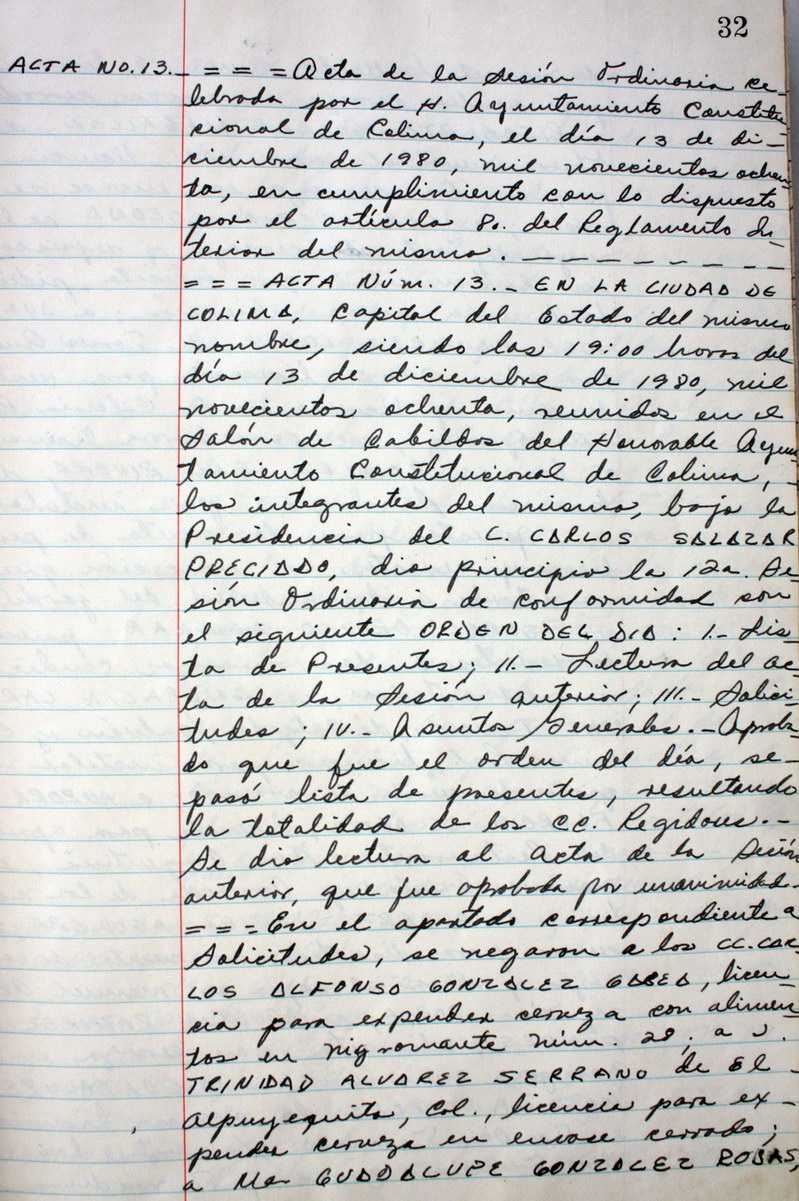 32
ACTA NO. 13._ = = = Acta de la Sesión Ordinaria ce-
lebrada por el H. Ayuntamiento Constitu
cional de Colima, el día 13 de di-
ciembre de 1980, mil novecientos ochen-
ta, en cumplimiento con lo dispuesto
por el artículo 8o. del Reglamento In-
terior del mismo. _ _ _ _ _ _ _ _
= = = ACTA NÚM. 13._ EN LA CIUDAD DE
COLIMA, Capital del Estado del mismo
nombre, siendo las 19:00 horas del
día 13 de diciembre de 1980, mil
novecientos ochenta, reunidos en el
Salón de Cabildos del Honorable Ayun
tamiento Constitucional de Colima, -
los integrantes del mismo, bajo la
Presidencia del C. CARLOS SALAZAR
PRECIADO, dio principio la 12a. Se-
sión Ordinaria de conformidad con
el siguiente ORDEN DEL DIA: I.- Lis-
ta de Presentes; II.- Lectura del ac-
ta de la Sesión anterior; III.- Solici-
tudes; IV.- Asuntos Generales.- Aproba-
do que fue el orden del día, se-
pasó lista de presentes, resultando
la totalidad de los CC. Regidores.-
Se dio lectura al acta de la Sesión
anterior, que fue aprobada por unanimidad.
= = = En el apartado correspondiente a
Solicitudes, se negaron a los CC. CAR-
LOS ALFONSO GONZALEZ GAREA, licen-
cia para expender cerveza con alimen-
tos en nigromante núm. 28; a J.
TRINIDAD ALVAREZ SERRANO de El -
Alpuyequito, Col., licencia para ex-
pender cerveza en envase cerrado;
a Ma GUADALUPE GONZALEZ ROJAS,